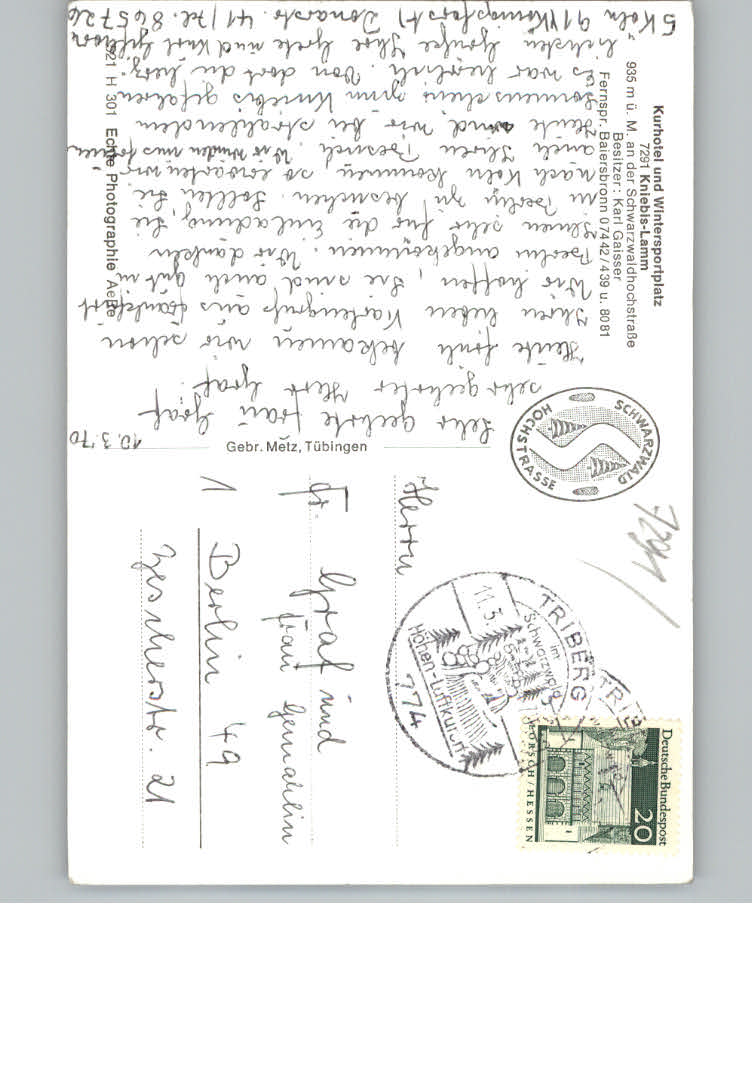 Kurhotel und Wintersportplatz
7291 Kniebis-Lamm
935 m ü. M. an der Schwarzwaldhochstraße
Besitzer: Karl Gaisser
Fernspr. Baiersbronn 07442/439 u. 8081
10.3.70
Sehr geehrte Frau Graf
sehr geehrter Herr Graf.
Heute früh bekamen wir schon
Ihren lieben Kartengruß aus Frankfurt
Wir hoffen, Sie sind auch gut in
Berlin angekommen. Wir danken
Ihnen sehr für die Einladung, Sie
in Berlin zu besuchen. Sollten Sie
nach Köln kommen, so erwarten wir
auch Ihren Besuch. Wir würden uns freuen
Heute sind wir bei strahlendem
Sonnenschein zum Kniebis gefahren
es war herrlich. Von dort die herz-
lichsten Grüße Ihre Grete und Kurt
5 Köln 91 (Königsforst) Donarstr. 41 / Tel. 865726
921 H 301 Echte Photographie
Gebr. Metz, Tübingen
SCHWARZWALD
HOCHSTRASSE
7291
Herrn
Dr. Graf und
Frau Gemahlin
1 Berlin 49
Zescherstr. 21
TRIBERG
im
Schwarzwald
11.3.
Höhen-Luftkurort
774
Deutsche Bundespost
20
LORSCH/HESSEN